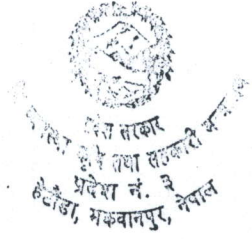 प्रदेश सरकार
कृषि तथा सहकारी
प्रदेश नं. ३
हेटौंडा, मकवानपुर, नेपाल